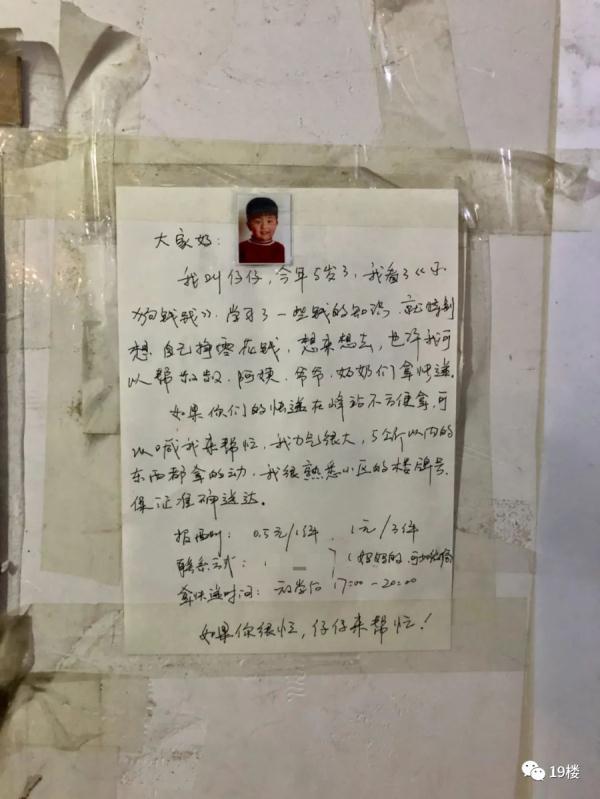 大家好:
我叫仔仔,今年5岁了,我看了《小
狗钱钱》,学习了一些钱的知识,就特别
想自己挣零花钱,想来想去,也许我可
以帮叔叔、阿姨、爷爷、奶奶们拿快递。
如果你们的快递在峰站不方便拿,可
以喊我来帮忙,我力气很大,5公斤以内的
东西都拿的动,我很熟悉小区的楼牌号,
保证准确送达。
报酬: 0.5元/1件, 1元/3件
联系方式: (妈妈的,可加微信)
拿快递时间: 放学后 17:00-20:00
如果你很忙,仔仔来帮忙!
19楼